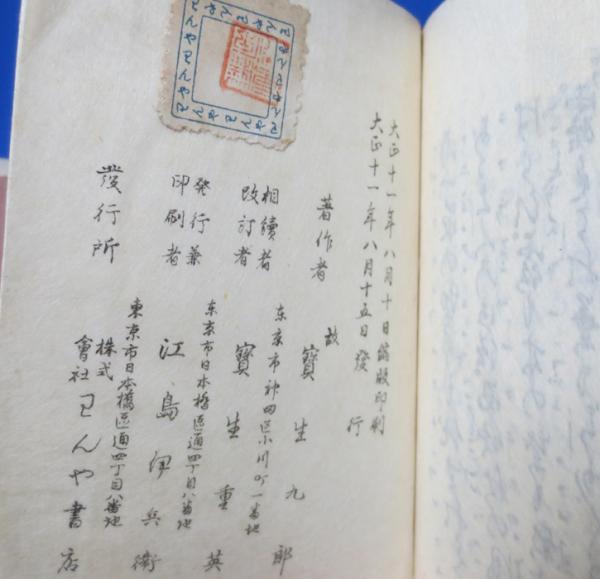 大正十一年八月十日鋳版印刷
大正十一年八月十五日發行
著作者 故 寶生九郎
東京市神田區小川町一番地
相續者
改訂者 寶生重英
東京市日本橋區通四丁目八番地
発行兼
印刷者 江島伊兵衛
東京市日本橋區通四丁目八番地
發行所 株式
會社 わんや書店